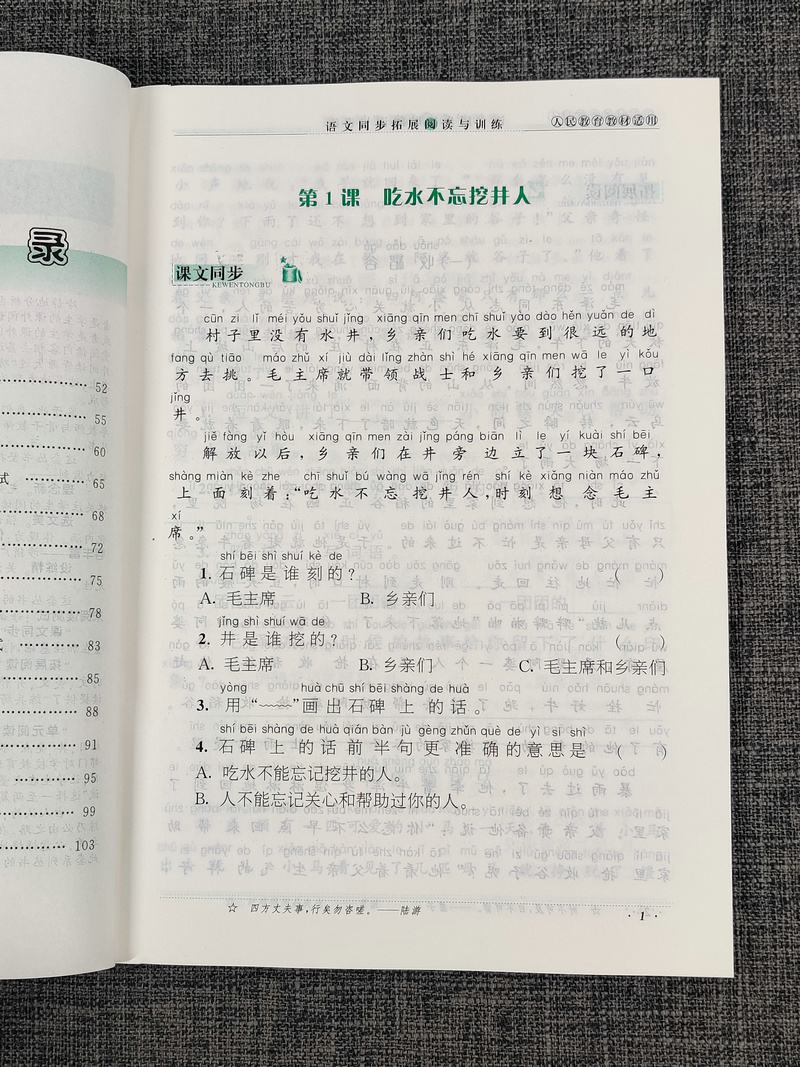 录
52
55
60
式 65
68
72
75
78
83
85
88
91
95
99
103
语文同步拓展阅读与训练
人民教育教材适用
第1课 吃水不忘挖井人
课文同步
KEWENTONGBU
cūn zi lǐ méi yǒu shuǐ jǐng xiāng qīn men chī shuǐ yào dào hěn yuǎn de dì
村子里没有水井,乡亲们吃水要到很远的地
fang qù tiāo máo zhǔ xí jiù dài lǐng zhàn shì hé xiāng qīn men wā le yì kǒu
方去挑。毛主席就带领战士和乡亲们挖了一口
jǐng
井。
jiě fàng yǐ hòu xiāng qīn men zài jǐng páng biān lì le yí kuài shí bēi
解放以后,乡亲们在井旁边立了一块石碑,
shàng miàn kè zhe chī shuǐ bú wàng wā jǐng rén shí kè xiǎng niàn máo zhǔ
上面刻着:“吃水不忘挖井人,时刻想念毛主
xí
席。”
shí bēi shì shuí kè de
1. 石碑是谁刻的? ( )
A. 毛主席 B. 乡亲们
jǐng shì shuí wā de
2. 井是谁挖的? ( )
A. 毛主席 B. 乡亲们 C. 毛主席和乡亲们
yòng huà chū shí bēi shàng de huà
3. 用“﹏﹏”画出石碑上的话。
shí bēi shàng de huà qián bàn jù gèng zhǔn què de yì si shì
4. 石碑上的话前半句更准确的意思是 ( )
A. 吃水不能忘记挖井的人。
B. 人不能忘记关心和帮助过你的人。
☆ 四方丈夫事,行矣勿咨嗟。——陆游
·1·